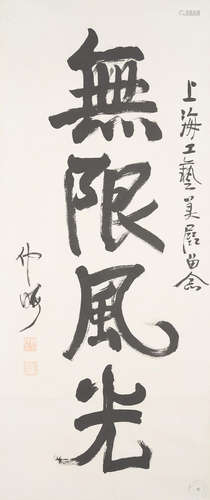 上海工藝美展留念
無限風光